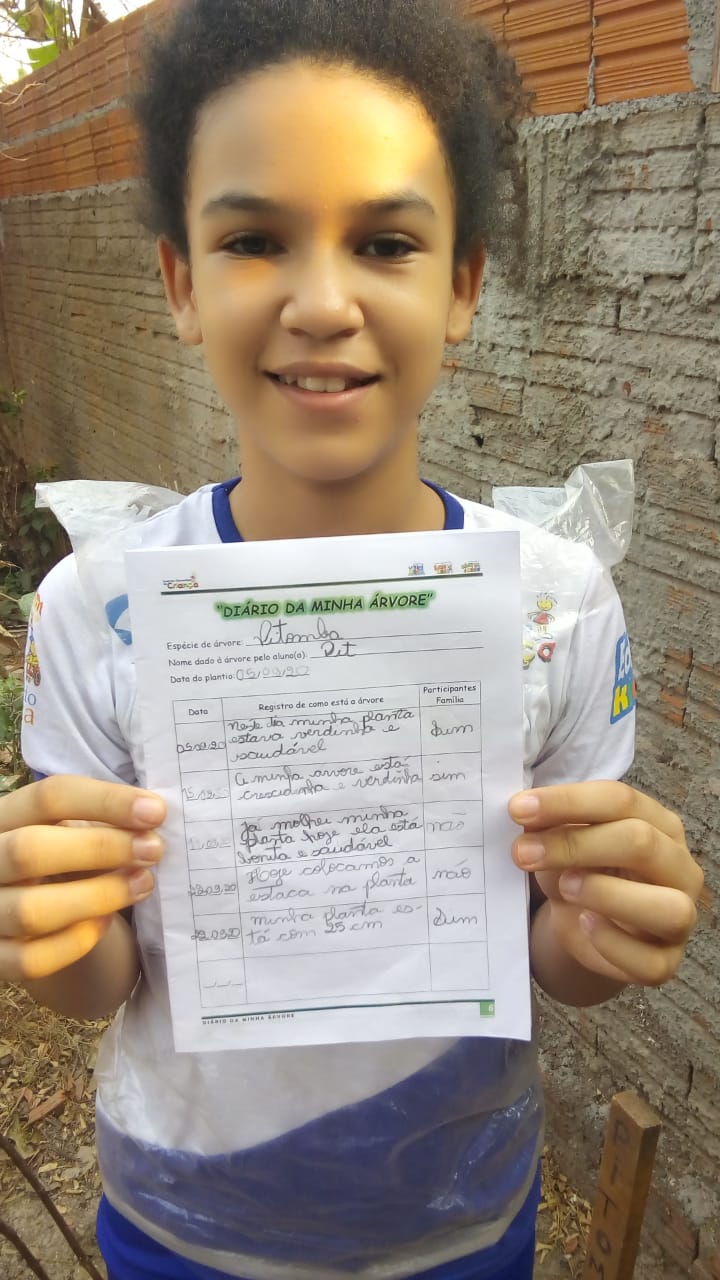 Criança
"DIÁRIO DA MINHA ÁRVORE"
Espécie de árvore: Pitomba
Nome dado à árvore pelo aluno(a): Pit
Data do plantio: 05/09/20
Data Registro de como está a árvore Participantes Família
05.09.20 Neste dia minha planta Sim
estava verdinha e
saudável
A minha arvore está sim
crescidinha e verdinha
Já molhei minha não
planta hoje ela está
bonita e saudável
22.09.20 Hoje colocamos a não
estaca na planta
minha planta es- Sim
tá com 25 cm
DIÁRIO DA MINHA ÁRVORE 6
PITOM